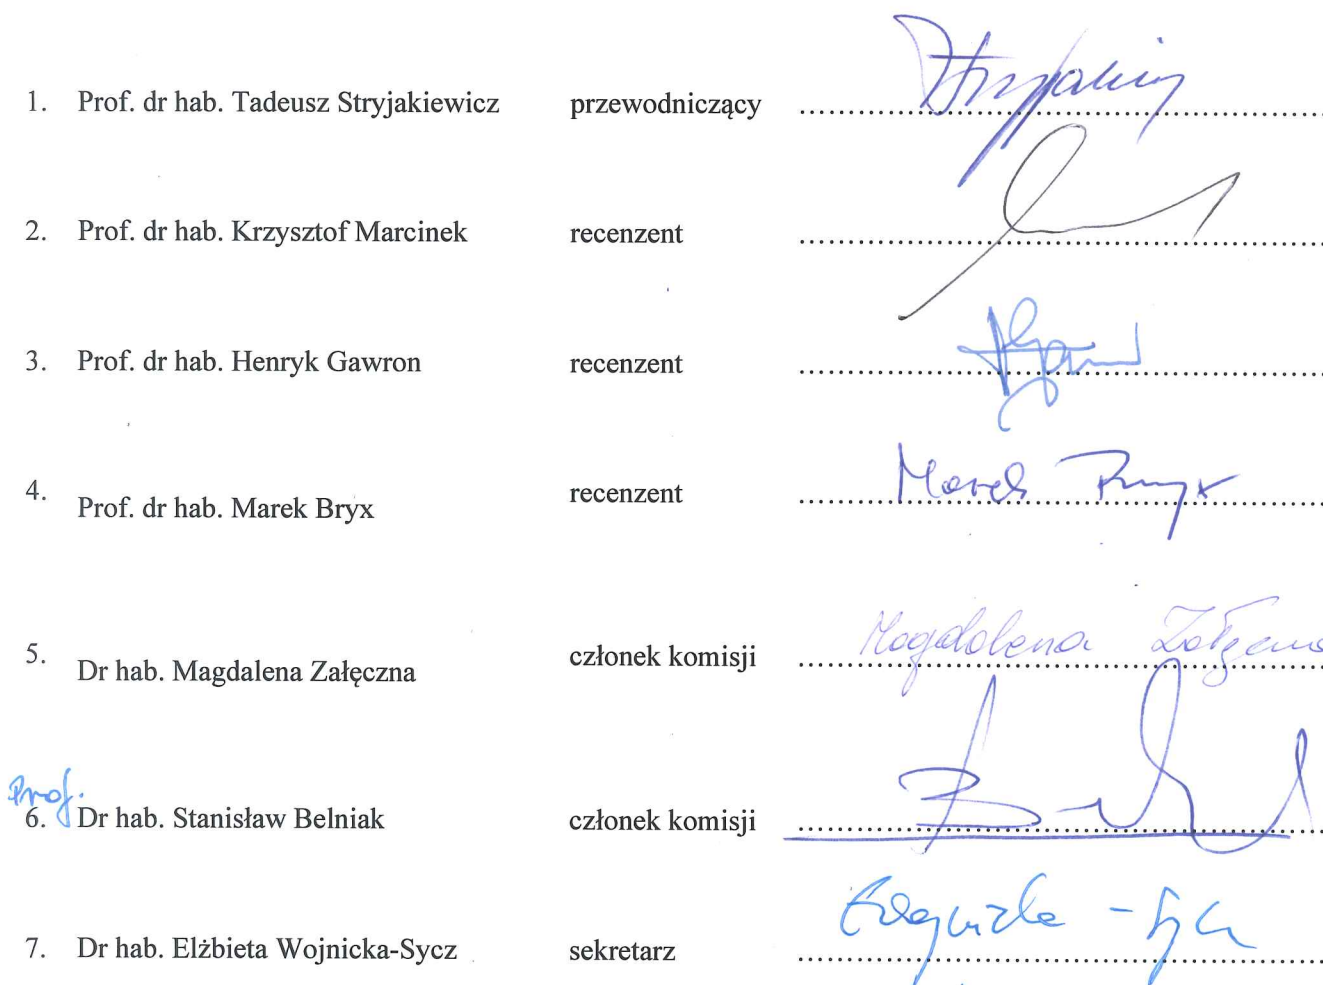 1. Prof. dr hab. Tadeusz Stryjakiewicz przewodniczący ........................................
2. Prof. dr hab. Krzysztof Marcinek recenzent ........................................
3. Prof. dr hab. Henryk Gawron recenzent ........................................
4. Prof. dr hab. Marek Bryx recenzent ........................................ Marek Bryx
5. Dr hab. Magdalena Załęczna członek komisji ........................................ Magdalena
Prof.
6. Dr hab. Stanisław Belniak członek komisji ........................................
7. Dr hab. Elżbieta Wojnicka-Sycz sekretarz ........................................